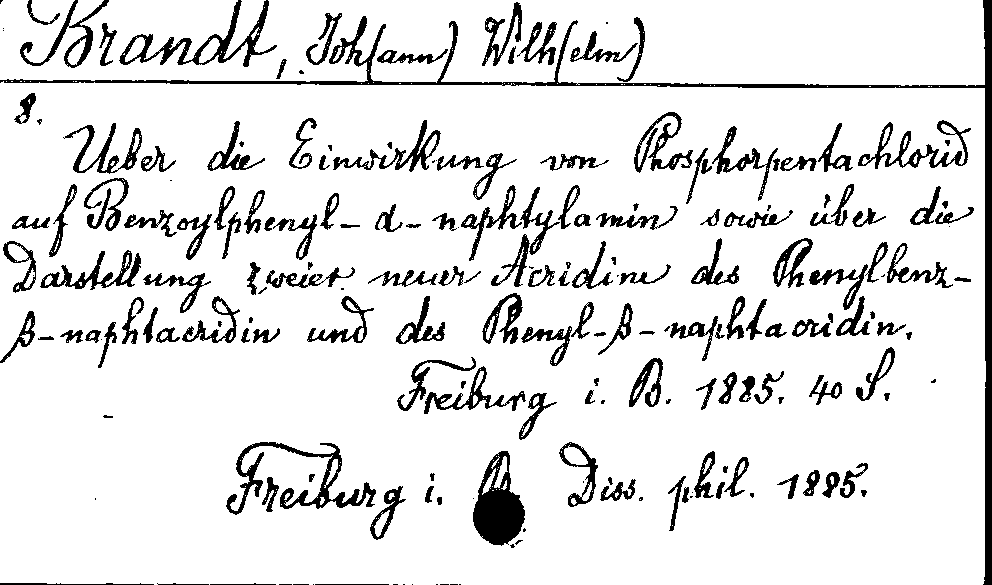 Brandt, Joh(ann) Wilh(elm)
8.
Ueber die Einwirkung von Phosphorpentachlorid
auf Benzoylphenyl-α-naphtylamin sowie über die
Darstellung zweier neuer Acridine des Phenylbenz-
β-naphtacridin und des Phenyl-β-naphtacridin.
Freiburg i. B. 1885. 40 S.
Freiburg i. B. Diss. phil. 1885.